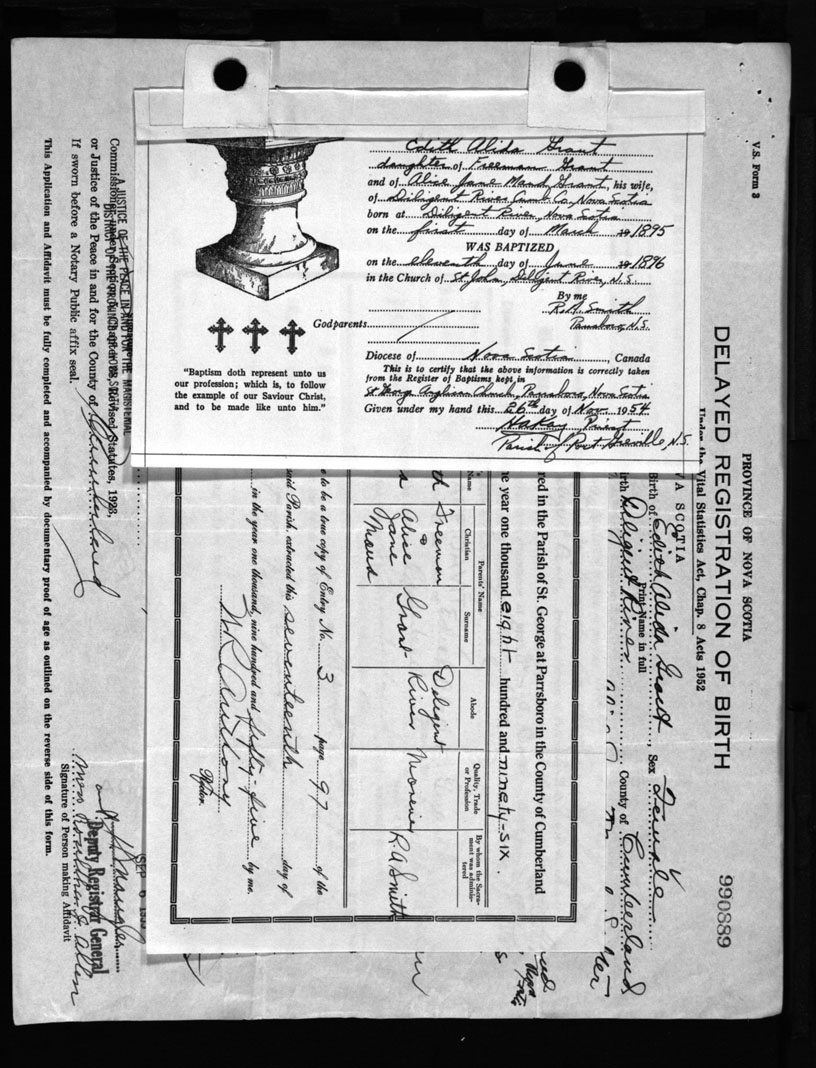 Edith Alida Grant
daughter of Freeman Grant
and of Alice Jane Maud Grant, his wife,
of Diligent River, Cumb. Co., Nova Scotia
born at Diligent River, Nova Scotia
on the first day of March 19 1895
WAS BAPTIZED
on the eleventh day of June 19 1896
in the Church of St John, Diligent River, N.S.
By me
R. A. Smith
Parrsboro, N.S.
Godparents
Diocese of Nova Scotia, Canada
This is to certify that the above information is correctly taken
from the Register of Baptisms kept in
St George Anglican Church, Parrsboro, Nova Scotia
Given under my hand this 26th day of Nov. 1954
Priest
Parish of Port Greville, N.S.
"Baptism doth represent unto us
our profession; which is, to follow
the example of our Saviour Christ,
and to be made like unto him."
V.S. Form 3
PROVINCE OF NOVA SCOTIA
DELAYED REGISTRATION OF BIRTH
990889
Under the Vital Statistics Act, Chap. 8 Acts 1952
VA SCOTIA
Birth of Edith Alida Grant, Sex Female
Print Name in full
birth Diligent River County of Cumberland
red in the Parish of St. George at Parrsboro in the County of Cumberland
he year one thousand eight hundred and ninety-six.
Parents' Name
Name
Christian
Surname
Abode
Quality, Trade
or Profession
By whom the Sacra-
ment was adminis-
tered
th
Freeman
&
Alice
Jane
Maud
Grant
Deligent
River
R.A Smith
e to be a true copy of Entry No. 3 page 97 of the
said Parish, extracted this seventeenth day of
in the year one thousand, nine hundred and fifty-five by me.
SEP 6
Deputy Registrar General
Allen
Signature of Person making Affidavit
A JUSTICE OF THE PEACE IN AND FOR THE MAGISTERIAL
Statutes, 1923,
or Justice of the Peace in and for the County of Cumberland
If sworn before a Notary Public affix seal.
This Application and Affidavit must be fully completed and accompanied by documentary proof of age as outlined on the reverse side of this form.